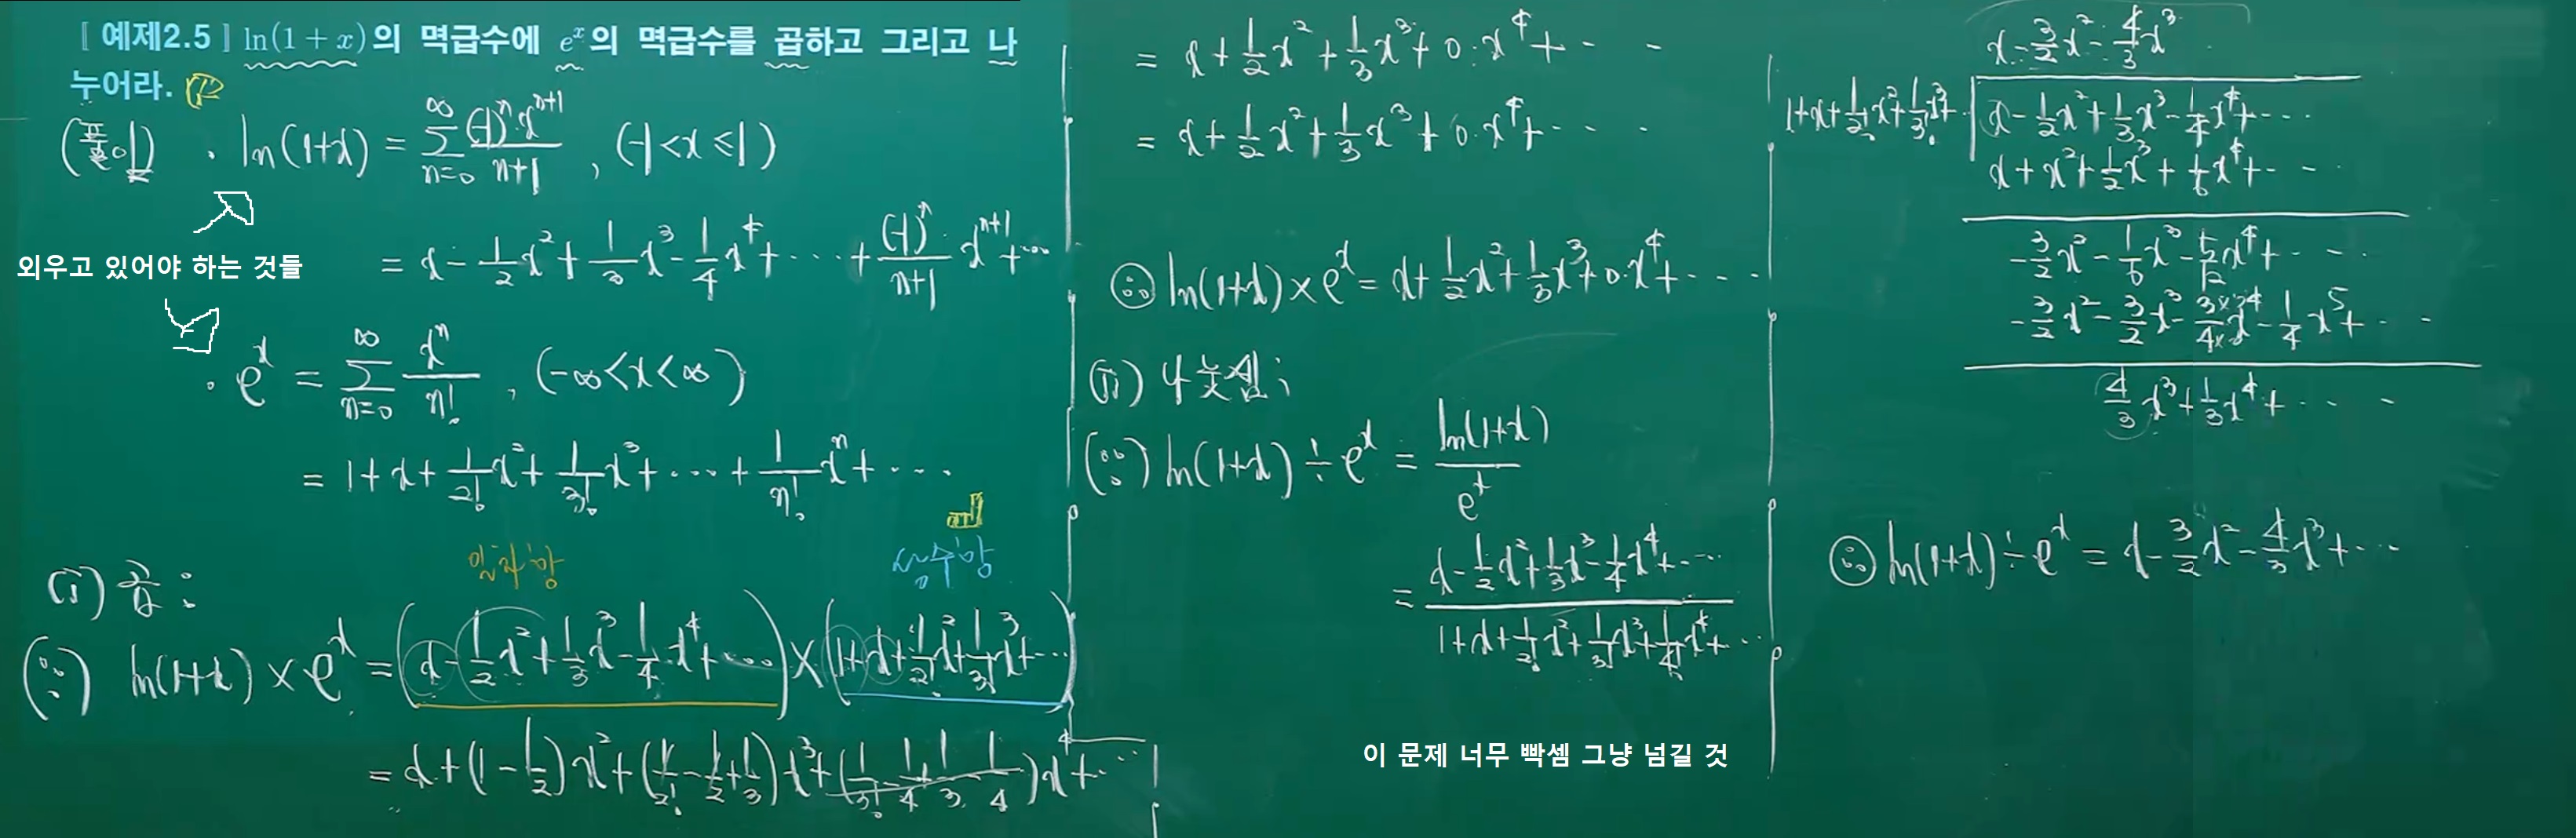 [ 예제2.5 ] ln(1 + x)의 멱급수에 e^x의 멱급수를 곱하고 그리고 나
누어라.
(풀이) · ln(1+x) = ∑_{n=0}^{∞} (-1)^n x^{n+1} / n+1 , (-1 < x ≤ 1)
= x - 1/2 x^2 + 1/3 x^3 - 1/4 x^4 + ··· + (-1)^n / n+1 · x^{n+1} + ···
외우고 있어야 하는 것들
· e^x = ∑_{n=0}^{∞} x^n / n! , (-∞ < x < ∞)
= 1 + x + 1/2! x^2 + 1/3! x^3 + ··· + 1/n! x^n + ···
일차항 상수항
(i) 곱 ;
(∵) ln(1+x) × e^x = (x - 1/2 x^2 + 1/3 x^3 - 1/4 x^4 + ···) × (1 + x + 1/2! x^2 + 1/3! x^3 + ···)
= x + (1 - 1/2) x^2 + (1/2! - 1/2 + 1/3) x^3 + (1/3! - 1/4 + 1/3 - 1/4) x^4 + ···
= x + 1/2 x^2 + 1/3 x^3 + 0·x^4 + ···
= x + 1/2 x^2 + 1/3 x^3 + 0·x^4 + ···
∴ ln(1+x) × e^x = x + 1/2 x^2 + 1/3 x^3 + 0·x^4 + ···
(ii) 나눗셈 ;
(∵) ln(1+x) ÷ e^x = ln(1+x) / e^x
= x - 1/2 x^2 + 1/3 x^3 - 1/4 x^4 + ··· / 1 + x + 1/2! x^2 + 1/3! x^3 + 1/4! x^4 + ···
이 문제 너무 빡셈 그냥 넘길 것
x - 3/2 x^2 - 4/3 x^3
1 + x + 1/2! x^2 + 1/3! x^3 + · | x - 1/2 x^2 + 1/3 x^3 - 1/4 x^4 + ···
x + x^2 + 1/2 x^3 + 1/6 x^4 + ···
- 3/2 x^2 - 1/6 x^3 - 5/12 x^4 + ···
- 3/2 x^2 - 3/2 x^3 - 3×3/4×3 x^4 - 1/4 x^5 + ···
4/3 x^3 + 1/3 x^4 + ···
∴ ln(1+x) ÷ e^x = x - 3/2 x^2 - 4/3 x^3 + ···